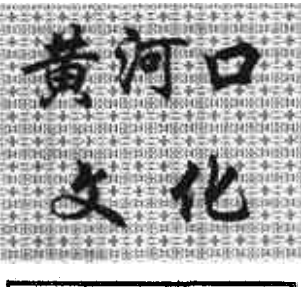 黄河口
文化